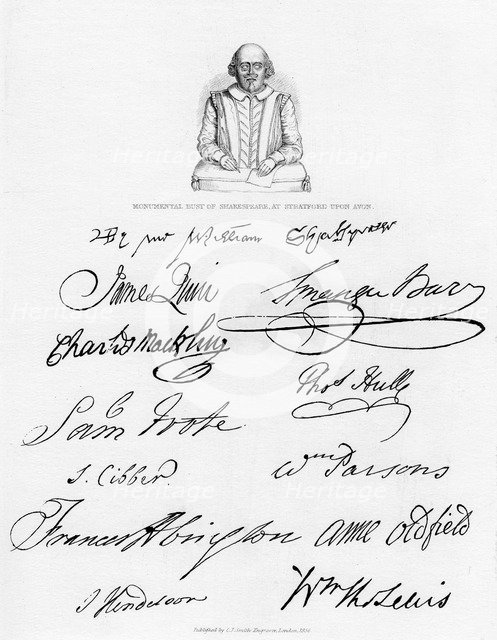 MONUMENTAL BUST OF SHAKESPEARE, AT STRATFORD UPON AVON.
By me William Shakspeare
James Quin Spranger Barry
Charles Macklin
Thos Hull
Sam Foote
S. Cibber. Wm Parsons
Frances Abington anne oldfield
J Henderson Wm Tho Lewis
Published by C. J. Smith Engraver, London, 1836
Heritage
Heritage